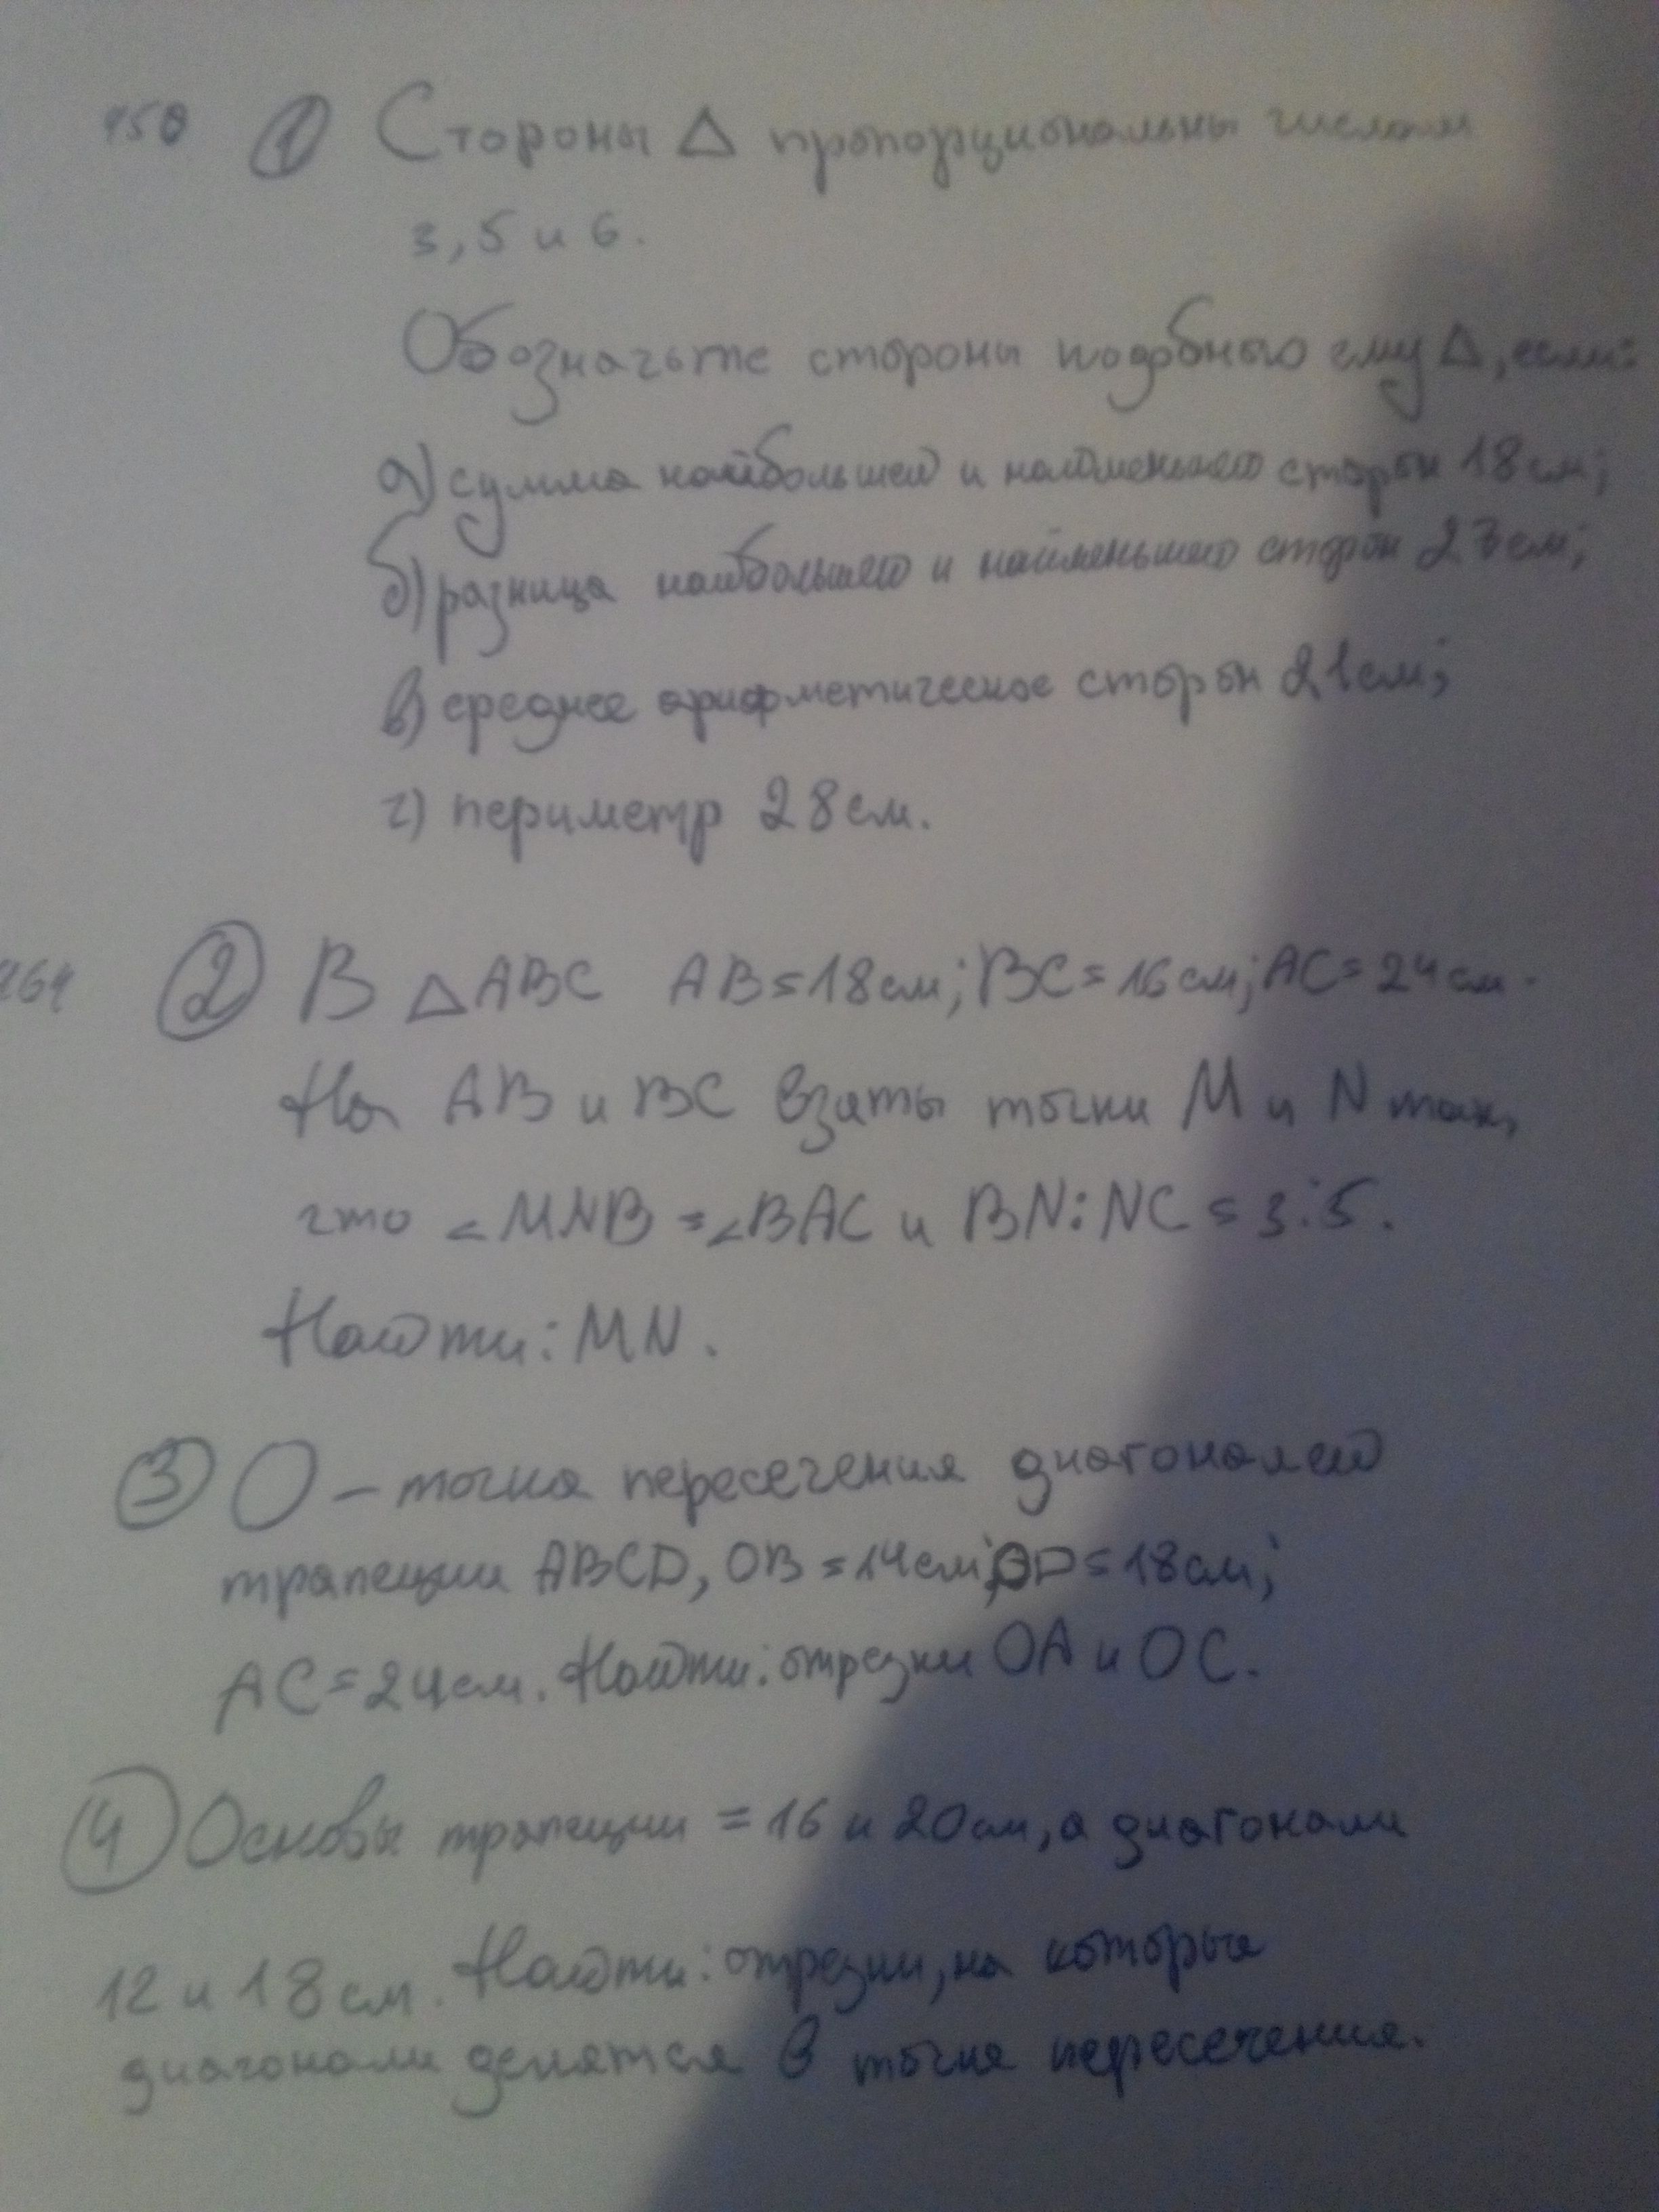 458 ① Стороны △ пропорциональны числам
3, 5 и 6.
Обозначьте стороны подобного ему △, если:
а) сумма наибольшей и наименьшего сторон 18 см;
б) разница наибольшего и наименьшего сторон 27 см;
в) среднее арифметическое сторон 21 см;
г) периметр 28 см.
464 ② В △ ABC AB = 18 см; BC = 16 см; AC = 24 см.
На AB и BC взяты точки M и N так,
что ∠MNB = ∠BAC и BN:NC = 3:5.
Найти: MN.
③ O – точка пересечения диагоналей
трапеции ABCD, OB = 14 см; OD = 18 см;
AC = 24 см. Найти: отрезки OA и OC.
④ Основы трапеции = 16 и 20 см, а диагонали
12 и 18 см. Найти: отрезки, на которые
диагонали делятся в точке пересечения.